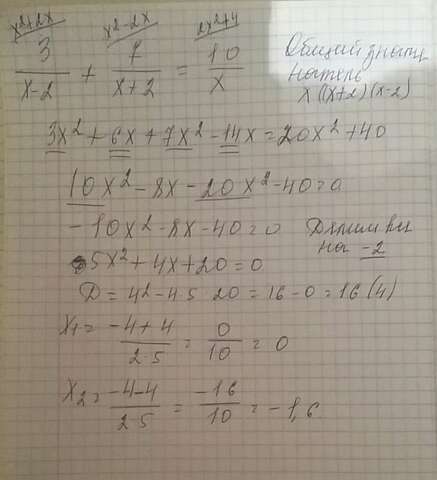 x²+2x x²-2x 2x²+4
3/x-2 + 7/x+2 = 10/x
Общий знаме
натель
x(x+2)(x-2)
3x² + 6x + 7x² - 14x = 20x² + 40
10x² - 8x - 20x² - 40 = 0
-10x² - 8x - 40 = 0
на -2
5x² + 4x + 20 = 0
D = 4² - 4·5·20 = 16 - 0 = 16 (4)
x₁ = -4+4/2·5 = 0/10 = 0
x₂ = -4-4/2·5 = -16/10 = -1,6